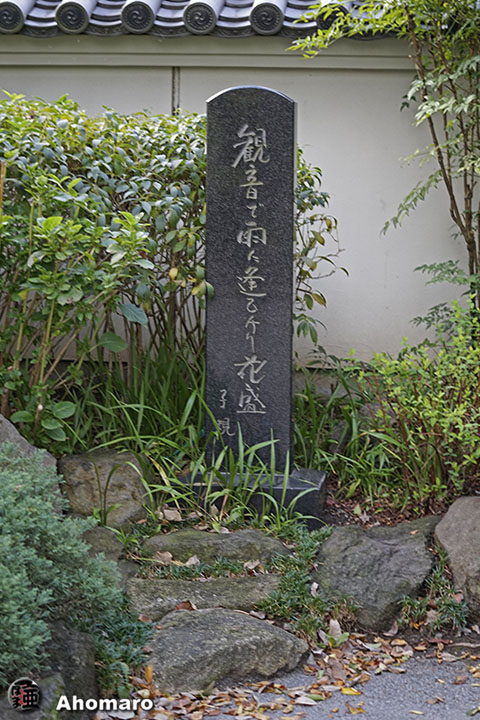 観音で雨に逢ひけり花盛
子規
Ahomaro